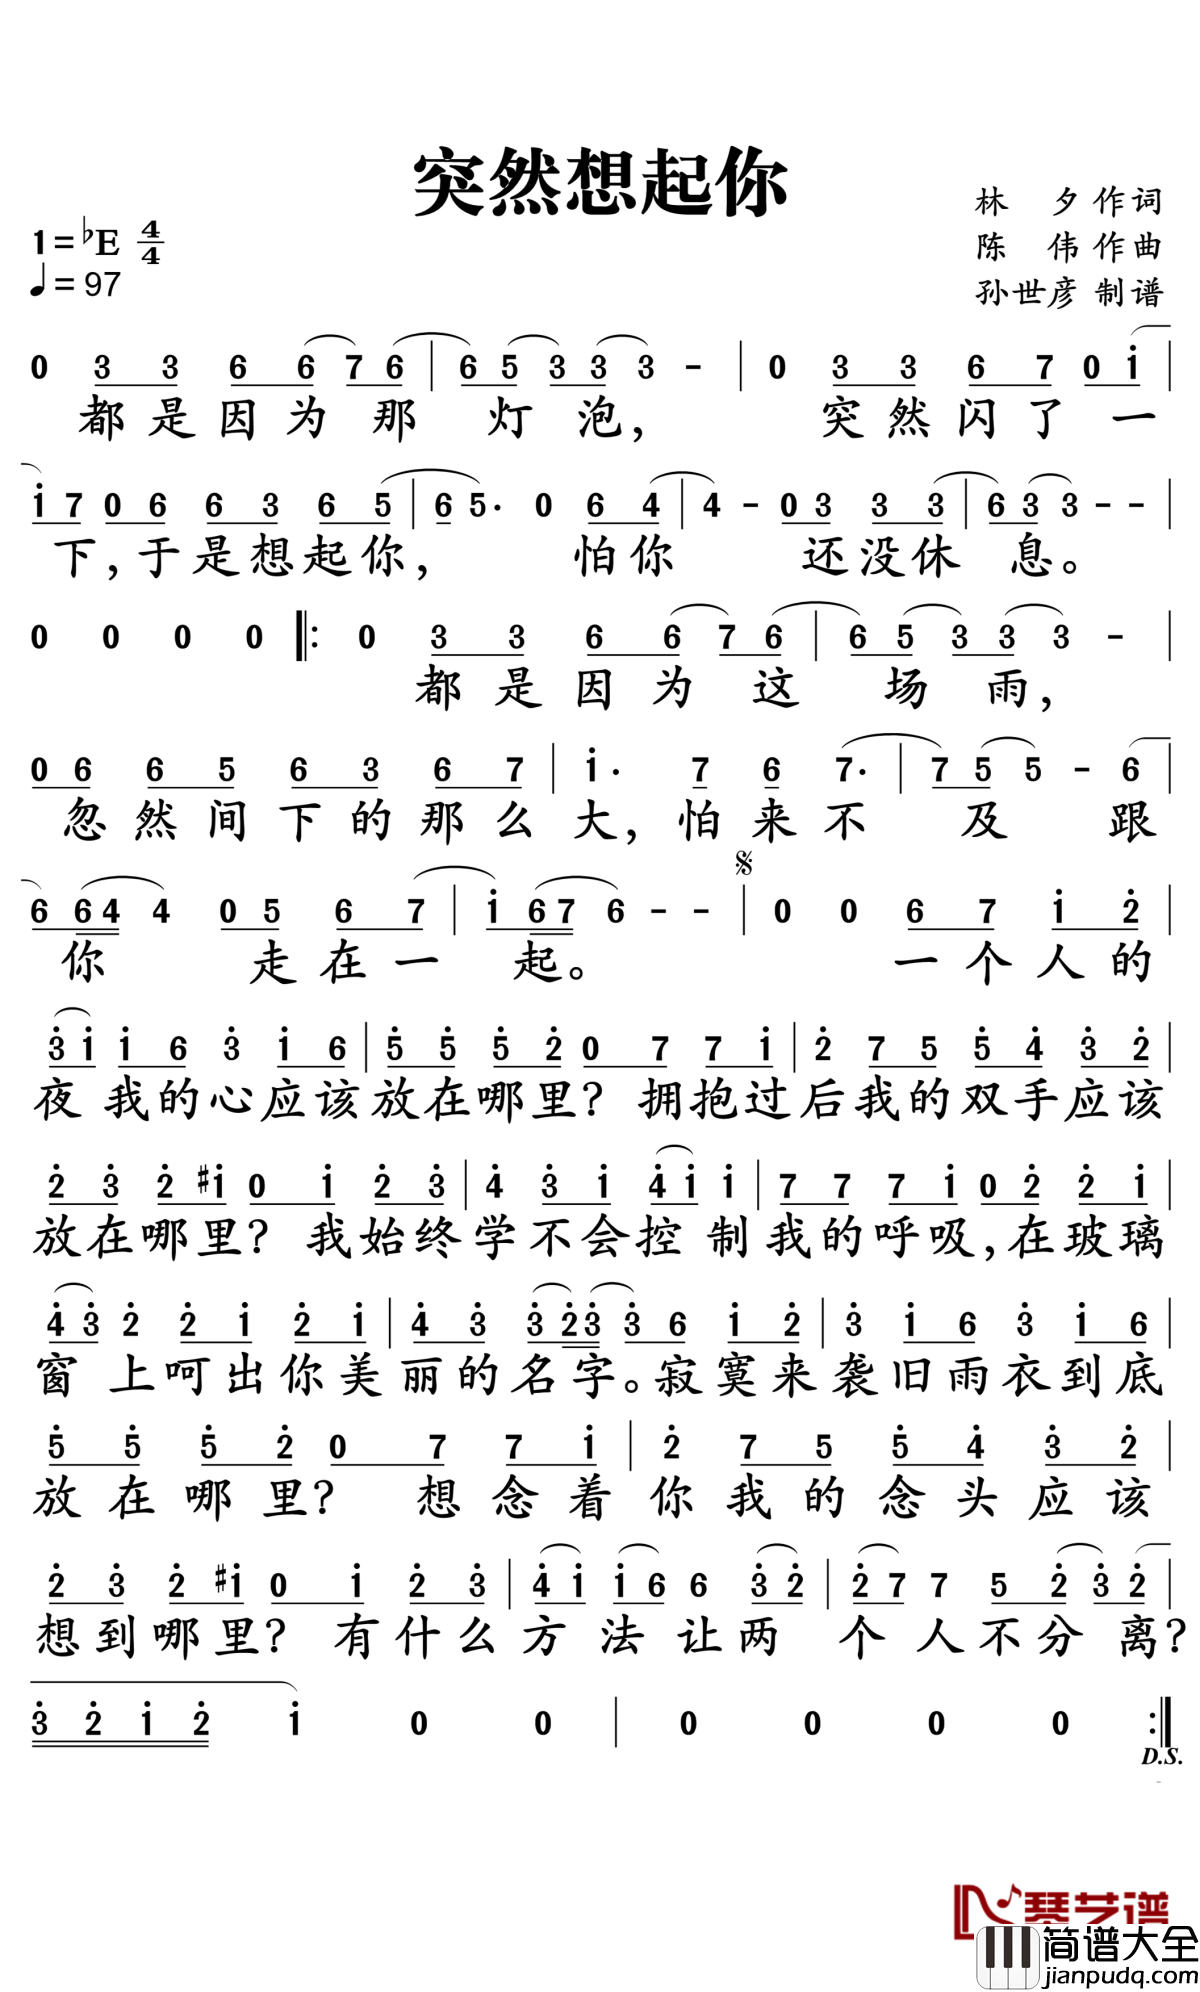 突然想起你
林 夕 作词
1=♭E 4/4
陈 伟 作曲
♩= 97
孙世彦 制谱
0 3 3 6 6 7 6 | 6 5 3 3 3 - | 0 3 3 6 7 0 i |
都是因为那 灯泡, 突然闪了一
i 7 0 6 6 3 6 5 | 6 5. 0 6 4 | 4 - 0 3 3 3 | 6 3 3 - - |
下,于是想起你, 怕你 还没休息。
0 0 0 0 ‖: 0 3 3 6 6 7 6 | 6 5 3 3 3 - |
都是因为这 场雨,
0 6 6 5 6 3 6 7 | i. 7 6 7. | 7 5 5 - 6 |
忽然间下的那么大,怕来不 及 跟
𝄋
6 6 4 4 0 5 6 7 | i 6 7 6 - - | 0 0 6 7 i 2̇ |
你 走在一 起。 一个人的
3̇ i i 6 3̇ i 6 | 5̇ 5̇ 5̇ 2̇ 0 7 7 i | 2̇ 7 5 5̇ 4̇ 3̇ 2̇ |
夜我的心应该放在哪里?拥抱过后我的双手应该
2̇ 3̇ 2̇ #i 0 i 2̇ 3̇ | 4̇ 3̇ i 4̇ i i | 7 7 7 i 0 2̇ 2̇ i |
放在哪里?我始终学不会控制我的呼吸,在玻璃
4̇ 3̇ 2̇ 2̇ i 2̇ i | 4̇ 3̇ 3̇ 2̇ 3̇ 3̇ 6 i 2̇ | 3̇ i 6 3̇ i 6
窗上呵出你美丽的名字。寂寞来袭旧雨衣到底
5̇ 5̇ 5̇ 2̇ 0 7 7 i | 2̇ 7 5 5̇ 4̇ 3̇ 2̇ |
放在哪里?想念着你我的念头应该
2̇ 3̇ 2̇ #i 0 i 2̇ 3̇ | 4̇ i i 6 6 3̇ 2̇ | 2̇ 7 7 5 2̇ 3̇ 2̇ |
想到哪里?有什么方法让两个人不分离?
3̇ 2̇ i 2̇ i 0 0 | 0 0 0 0 :‖
D.S.
琴艺谱
简谱大全
jianpudq.com